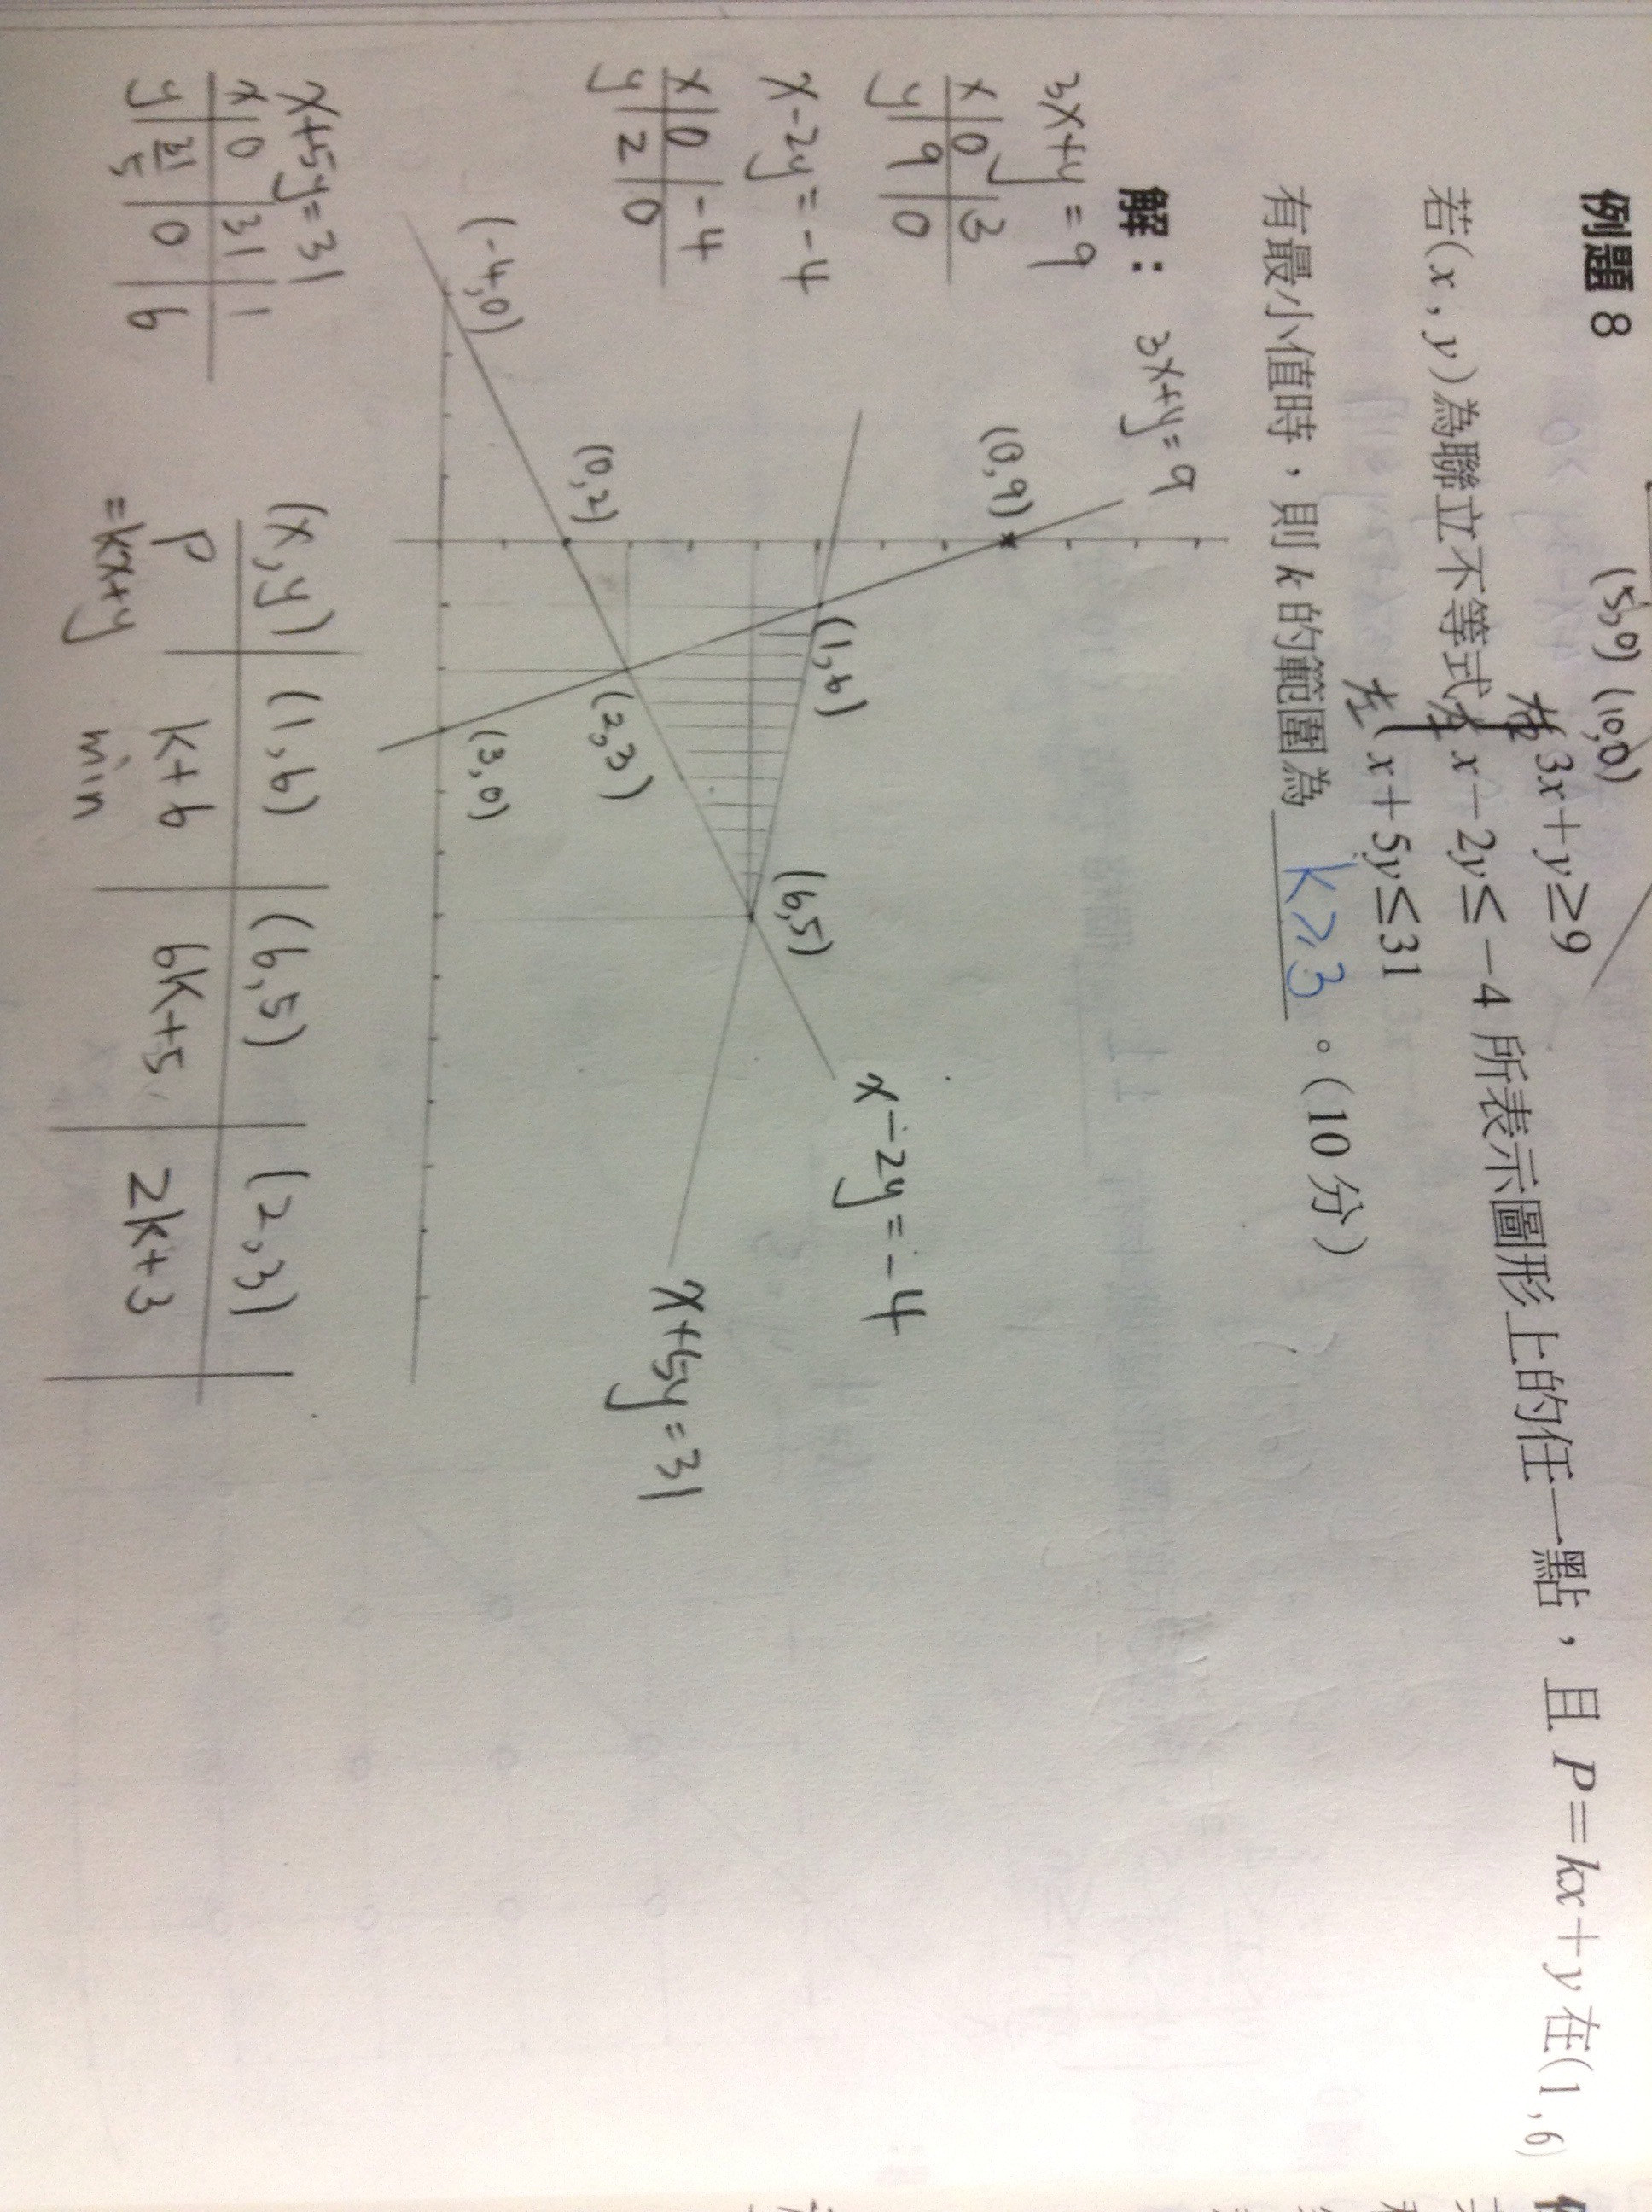 (5,9) (10,0)
例題 8
右 3x+y≥9
若(x,y)為聯立不等式 左 x-2y≤-4 所表示圖形上的任一點，且 P=kx+y 在(1,6)
左 x+5y≤31
有最小值時，則 k 的範圍為 k≥3 。(10 分)
解：
3x+y=9
3x+y=9
x 0 3
y 9 0
x-2y=-4
x 0 -4
y 2 0
x+5y=31
x 0 31 1
y 31/5 0 6
(0,9)
(1,6)
(6,5)
(0,2)
(2,3)
(-4,0)
(3,0)
x-2y=-4
x+5y=31
(x,y) (1,6) (6,5) (2,3)
P k+6 6k+5 2k+3
=kx+y min